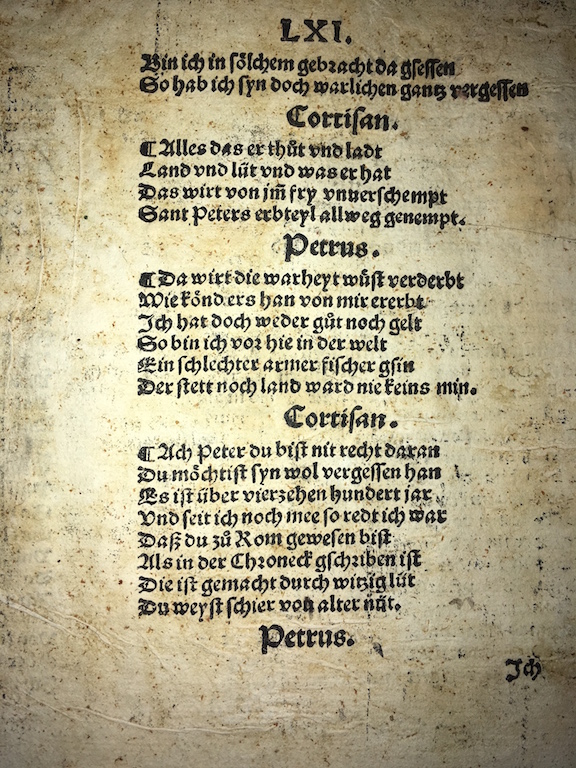 LXI.
Bin ich in sölchem gebracht da gsessen
So hab ich syn doch warlichen gantz vergessen
Cortisan.
¶ Alles das er thůt vnd ladt
Land vnd lüt vnd was er hat
Das wirt von jm̄ fry vnuerschempt
Sant Peters erbteyl allweg genempt.
Petrus.
¶ Da wirt die warheyt wůst verderbt
Wie könd ers han von mir ererbt
Ich hat doch weder gůt noch gelt
So bin ich vor hie in der welt
Ein schlechter armer fischer gsin
Der stett noch land ward nie keins min.
Cortisan.
¶ Ach Peter du bist nit recht daran
Du möchtist syn wol vergessen han
Es ist über vierzehen hundert jar
Vnd seit ich noch mee so redt ich war
Daß du zů Rom gewesen bist
Als in der Chroneck gschriben ist
Die ist gemacht durch witzig lüt
Du weyst schier von alter nüt.
Petrus.
Ich